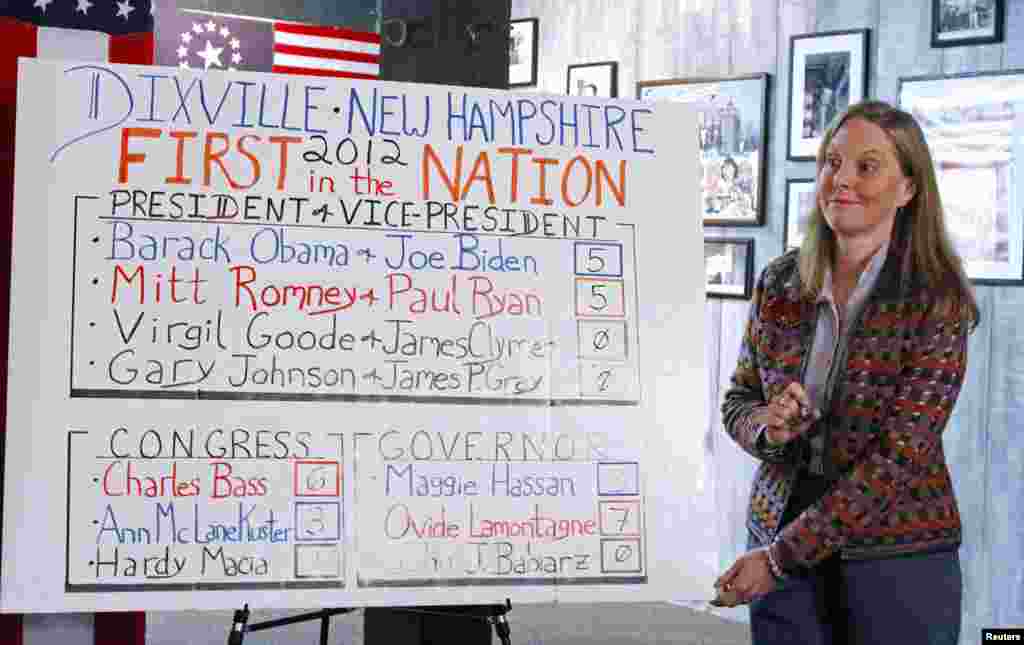 DIXVILLE · NEW HAMPSHIRE
FIRST 2012 in the NATION
PRESIDENT + VICE-PRESIDENT
· Barack Obama + Joe Biden 5
· Mitt Romney + Paul Ryan 5
· Virgil Goode + James Clymer 0
· Gary Johnson + James P. Gray
CONGRESS
· Charles Bass 6
· Ann McLane Kuster 3
· Hardy Macia
GOVERNOR
· Maggie Hassan
Ovide Lamontagne 7
J. Babiarz 0
Reuters